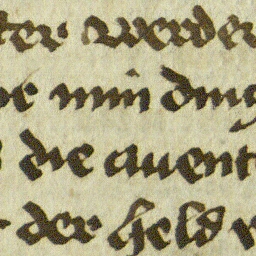 ter werder
e min ding
die auent
der held